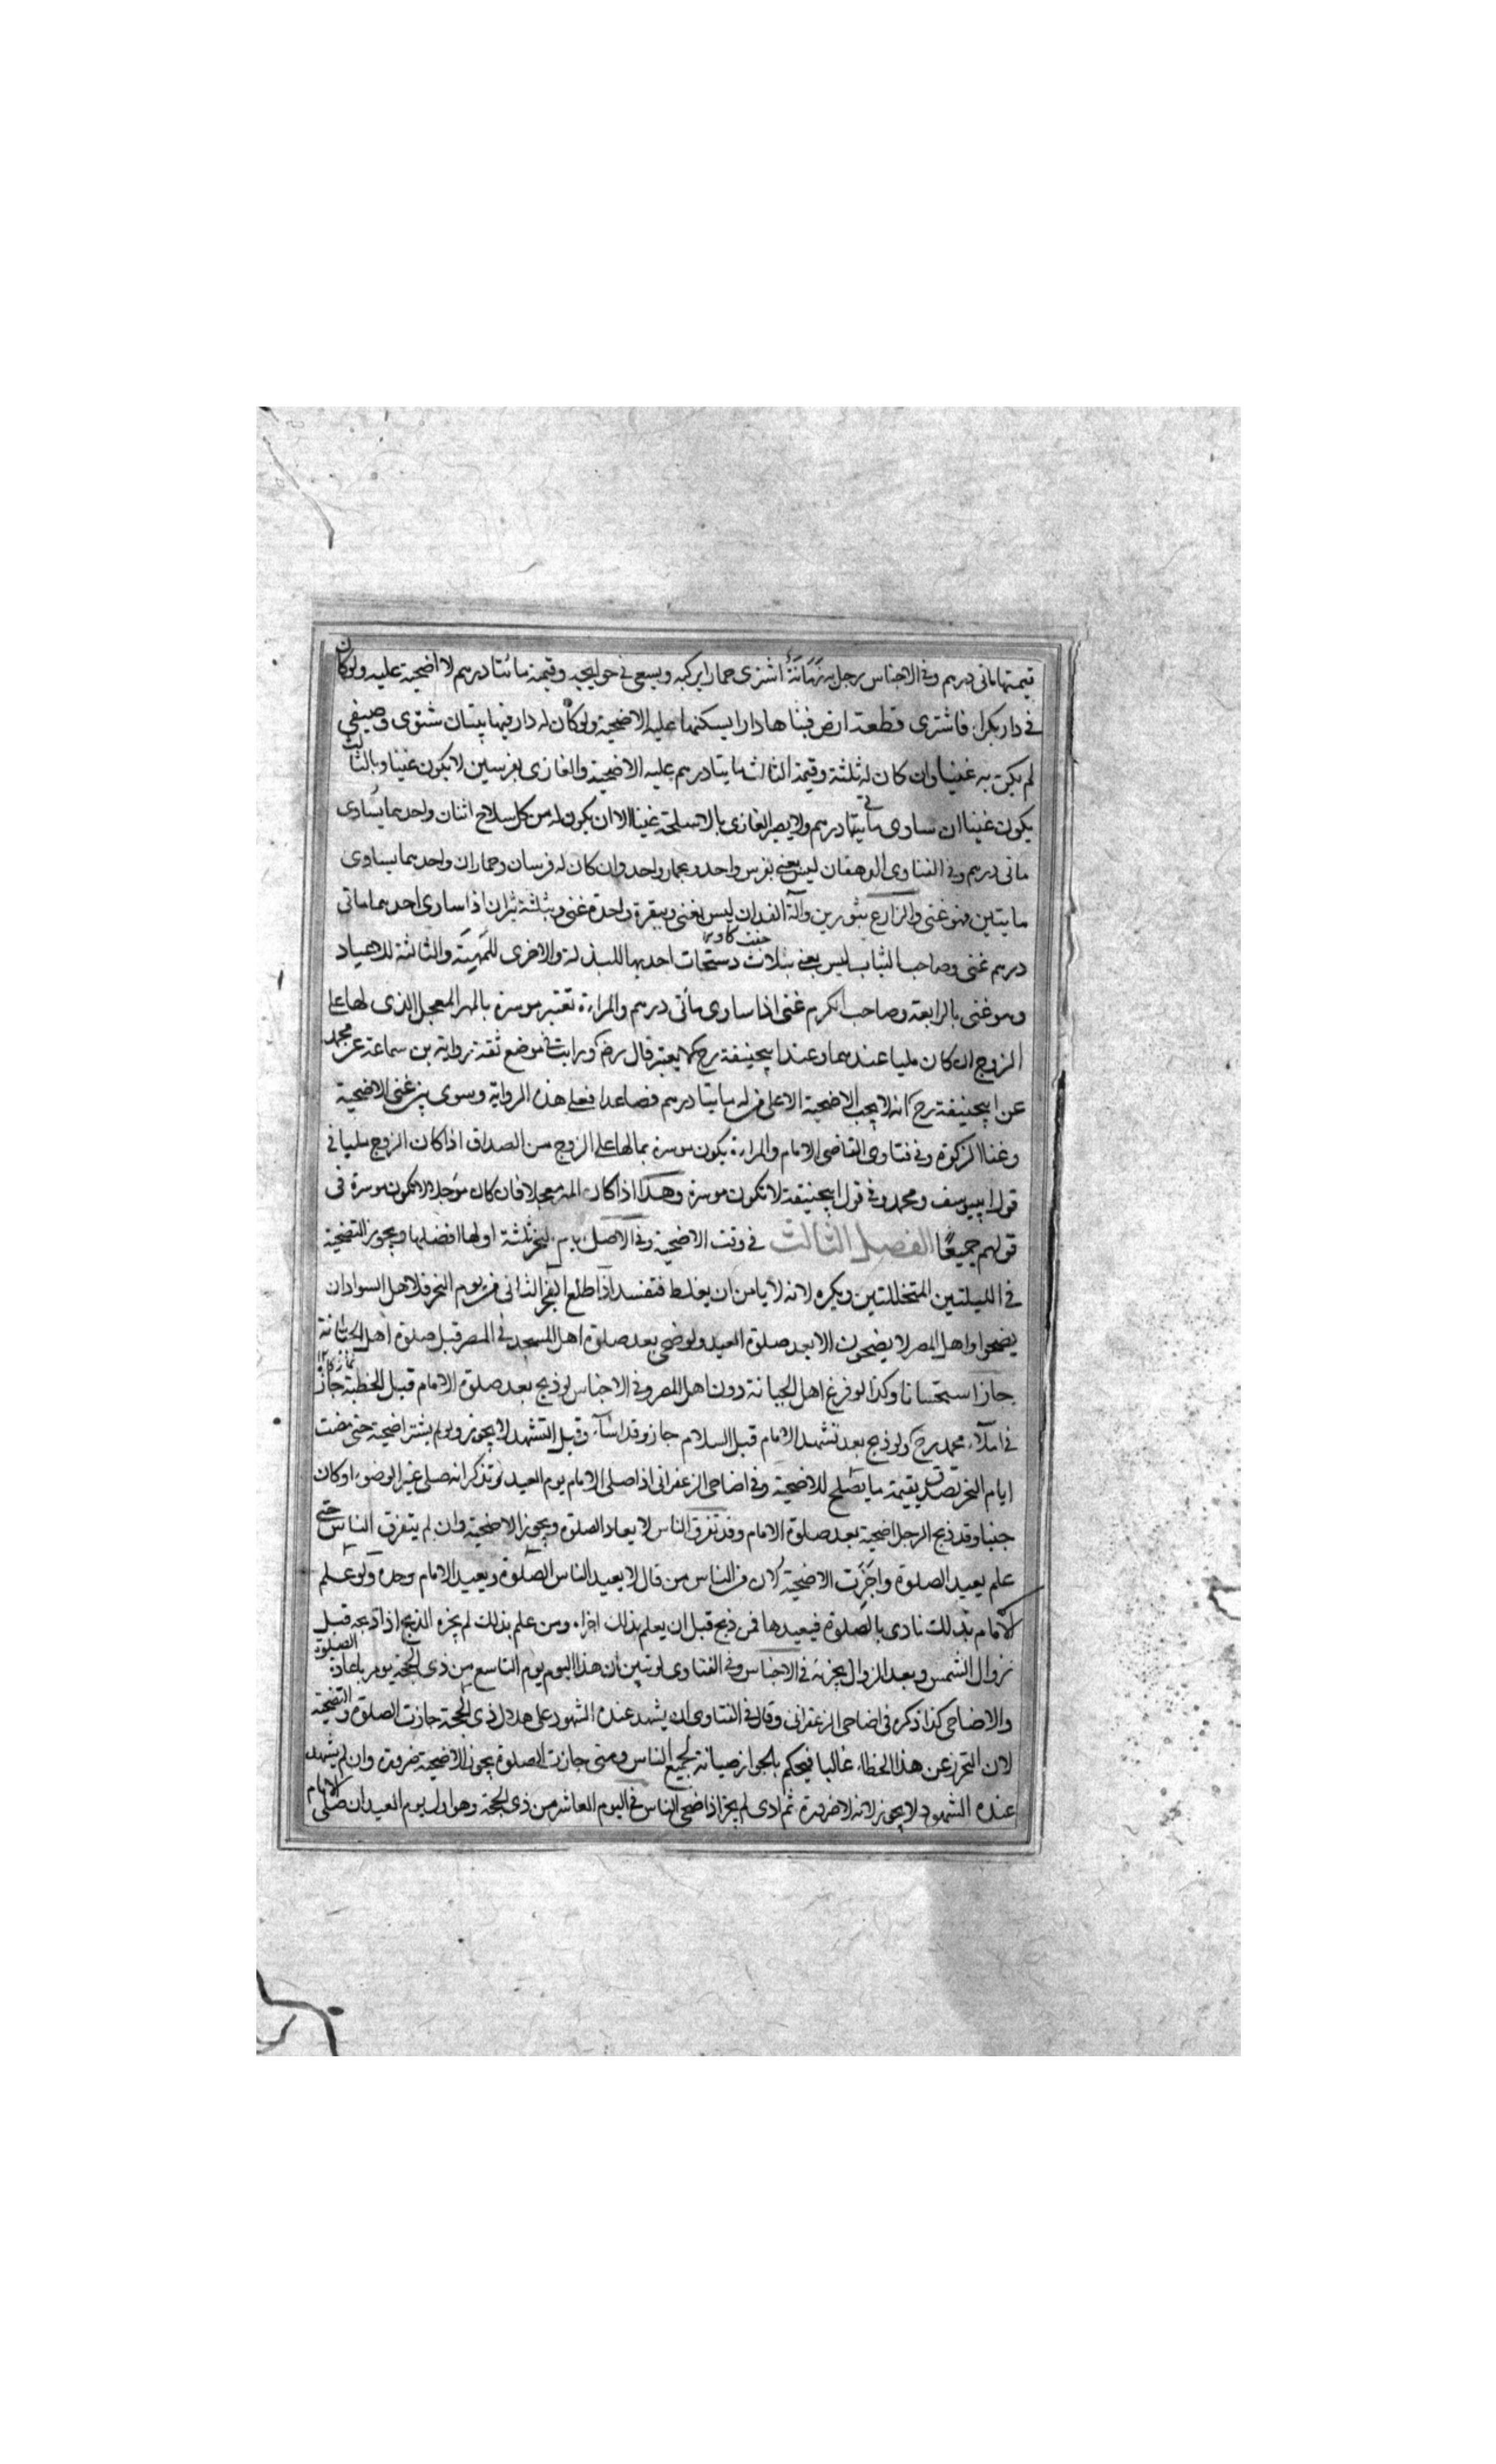 قيمتها ماتى درهم وفى الاجناس رجل به زَمَانَةٌ اشترى حمارا يركبه ويسعى فى حوايجه وقيمته مائتا درهم لا اضحية عليه ولوكان
فى دار بكراء فاشترى قطعة ارض فبناها دارا يسكنها عليه الاضحية ولوكان له دار فيها بيتان شتوى وصيفى
لم يكن به غنيا وان كان له ثلثة وقيمة الثالث مايتا درهم عليه الاضحية والغازى بفرسين لا يكون غنيا وبالثالث
يكون غنيا ان ساوى مأيتى درهم ولا يصير الغازى بالاسلحة غنيا الا ان يكون له من كل سلاح اثنان واحدهما يساوى
ماتى درهم وفى الفتاوى الدهقان ليس بغنى بفرس واحد وبحمار واحد وان كان له فرسان وحماران واحدهما يساوى
مايتين فهو غنى والزارع بثورين وآلة الفدان ليس بغنى وببقرة واحدة غنى وبثلثة ثيران اذا ساوى احدهما ماتى
جفت كاو
درهم غنى وصاحب الثياب ليس بغنى بثلاث دستجات احديها للبذلة والاخرى للمهنة والثالثة للاعياد
وهو غنى بالرابعة وصاحب الكرم غنى اذا ساوى مأتى درهم والمراءة تعتبر موسرة بالمهر المعجل الذى لها على
الزوج ان كان مليا عندهما وعند ابيحنيفة رح لا يعتبر قال رضه ورايت فى موضع ثقة رواية بن سماعة عن محمد
عن ابيحنيفة رح انه لا يجب الاضحية الا على من له مايتا درهم فصاعدا فعلى هذه الرواية وسوى بين غنى الاضحية
وغنا الزكوة وفى فتاوى القاضى الامام والمراءة يكون موسرة بمالها على الزوج من الصداق اذا كان الزوج مليا فى
قول ابييوسف ومحمد وفى قول ابيحنيفة لا تكون موسرة وهذا اذا كان المهر معجلا فان كان مؤجلا لا تكون موسرة فى
قولهم جميعًا الفصل الثالث فى وقت الاضحية وفى الاصل ايام النحر ثلثة اولها افضلها ويجوز التضحية
فى الليلتين المتخللتين ويكره لانه لا يامن ان يغلط فتفسد اذا طلع الفجر الثانى من يوم النحر فلاهل السواد ان
يضحوا واهل المصر لا يضحون الا بعد صلوة العيد ولو ضحى بعد صلوة اهل المسجد فى المصر قبل صلوة اهل الجبانة
جاز استحسانا وكذا لو فرغ اهل الجبانة دون اهل المصر وفى الاجناس لو ذبح بعد صلوة الامام قبل الخطبة جاز
فى املآء محمد رح ولو ذبح بعد تشهد الامام قبل السلام جاز وقد اسآء وقبل التشهد لا يجوز ولو لم يشتر اضحية حتى مضت
ايام النحر تصدق بقيمة ما يصلح للاضحية وفى اضاحى الزعفرانى اذا صلى الامام يوم العيد ثم تذكر انه صلى غير الوضوء او كان
جنبا وقد ذبح الرجل اضحية بعد صلوة الامام وقد تفرق الناس لا يعاد الصلوة ويجوز الاضحية وان لم يتفرق الناس حتى
علم يعيد الصلوة واجزت الاضحية لان من الناس من قال لا يعيد الناس الصلوة ويعيد الامام وحده ولو علم
الامام بذلك نادى بالصلوة فيعيدها فمن ذبح قبل ان يعلم بذلك اجزاه ومن علم بذلك لم يجزه الذبح اذا ذبحه قبل
زوال الشمس وبعد الزوال يجزئه فى الاجناس وفى الفتاوى لو تبين ان هذا اليوم يوم التاسع من ذى الحجة يومر باعادة الصلوة
والاضاحى كذا ذكره فى اضاحى الزعفرانى وقال فى الفتاوى ان يشهد عنده الشهود على هلال ذى الحجة جازت الصلوة والتضحية
لان التحرز عن هذا الخطاء غالبا فيحكم بالجواز صيانة لجميع الناس ومتى جازت الصلوة يجوز الاضحية ضرورة وان لم يشهد
عنده الشهود لا يجوز لانه لا ضرورة ثم ادى لم يجز اذا ضحى الناس فى اليوم العاشر من ذى الحجة وهو اول يوم العيد ان صلى الامام